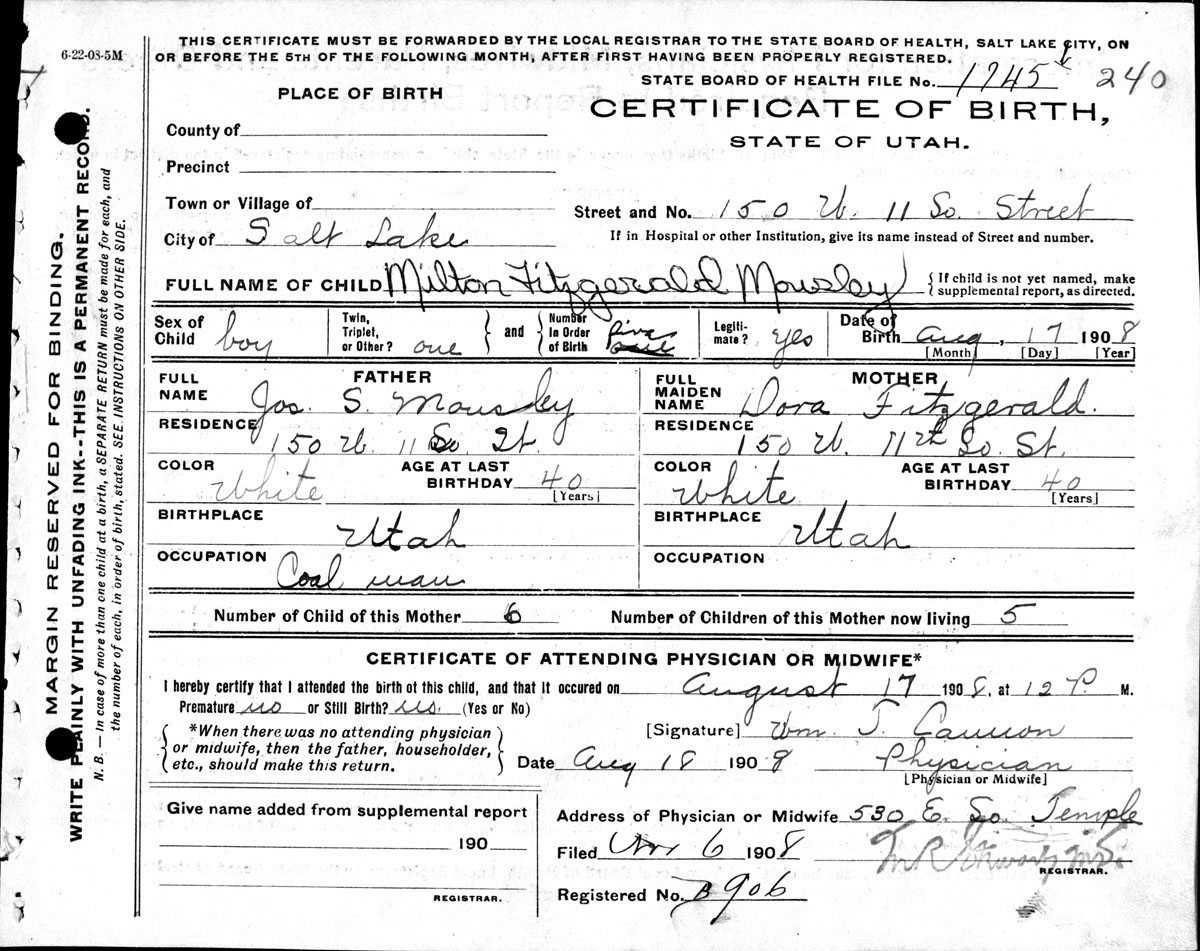 6-22-08-5M
THIS CERTIFICATE MUST BE FORWARDED BY THE LOCAL REGISTRAR TO THE STATE BOARD OF HEALTH, SALT LAKE CITY, ON
OR BEFORE THE 5TH OF THE FOLLOWING MONTH, AFTER FIRST HAVING BEEN PROPERLY REGISTERED.
STATE BOARD OF HEALTH FILE No. 1745 240
PLACE OF BIRTH
CERTIFICATE OF BIRTH,
STATE OF UTAH.
County of
Precinct
Town or Village of
Street and No. 150 W. 11 So. Street
City of Salt Lake
If in Hospital or other Institution, give its name instead of Street and number.
FULL NAME OF CHILD Milton Fitzgerald Mousley
{If child is not yet named, make
supplemental report, as directed.
Sex of Child boy
Twin, Triplet, or Other? one
and
Number In Order of Birth five
Legiti-mate? yes
Date of Birth Aug, 17 1908
[Month] [Day] [Year]
FATHER
FULL NAME Jos. S. Mousley
RESIDENCE 150 W. 11 So. St.
COLOR White
AGE AT LAST BIRTHDAY 40
[Years]
BIRTHPLACE Utah
OCCUPATION Coal man
MOTHER
FULL MAIDEN NAME Dora Fitzgerald.
RESIDENCE 150 W. 11th So. St.
COLOR White
AGE AT LAST BIRTHDAY 40
[Years]
BIRTHPLACE Utah
OCCUPATION
Number of Child of this Mother 6 Number of Children of this Mother now living 5
CERTIFICATE OF ATTENDING PHYSICIAN OR MIDWIFE*
I hereby certify that I attended the birth of this child, and that it occured on August 17 1908, at 12 P. M.
Premature no or Still Birth? no. (Yes or No)
{*When there was no attending physician
or midwife, then the father, householder,
etc., should make this return.}
[Signature] Wm. T. Cannon
Date Aug 18 1908 Physician
[Physician or Midwife]
Give name added from supplemental report
190
REGISTRAR.
Address of Physician or Midwife 530 E. So. Temple
Filed 6 1908
REGISTRAR.
Registered No. B 906
MARGIN RESERVED FOR BINDING.
WRITE PLAINLY WITH UNFADING INK--THIS IS A PERMANENT RECORD.
N. B. — In case of more than one child at a birth, a SEPARATE RETURN must be made for each, and
the number of each, in order of birth, stated. SEE INSTRUCTIONS ON OTHER SIDE.